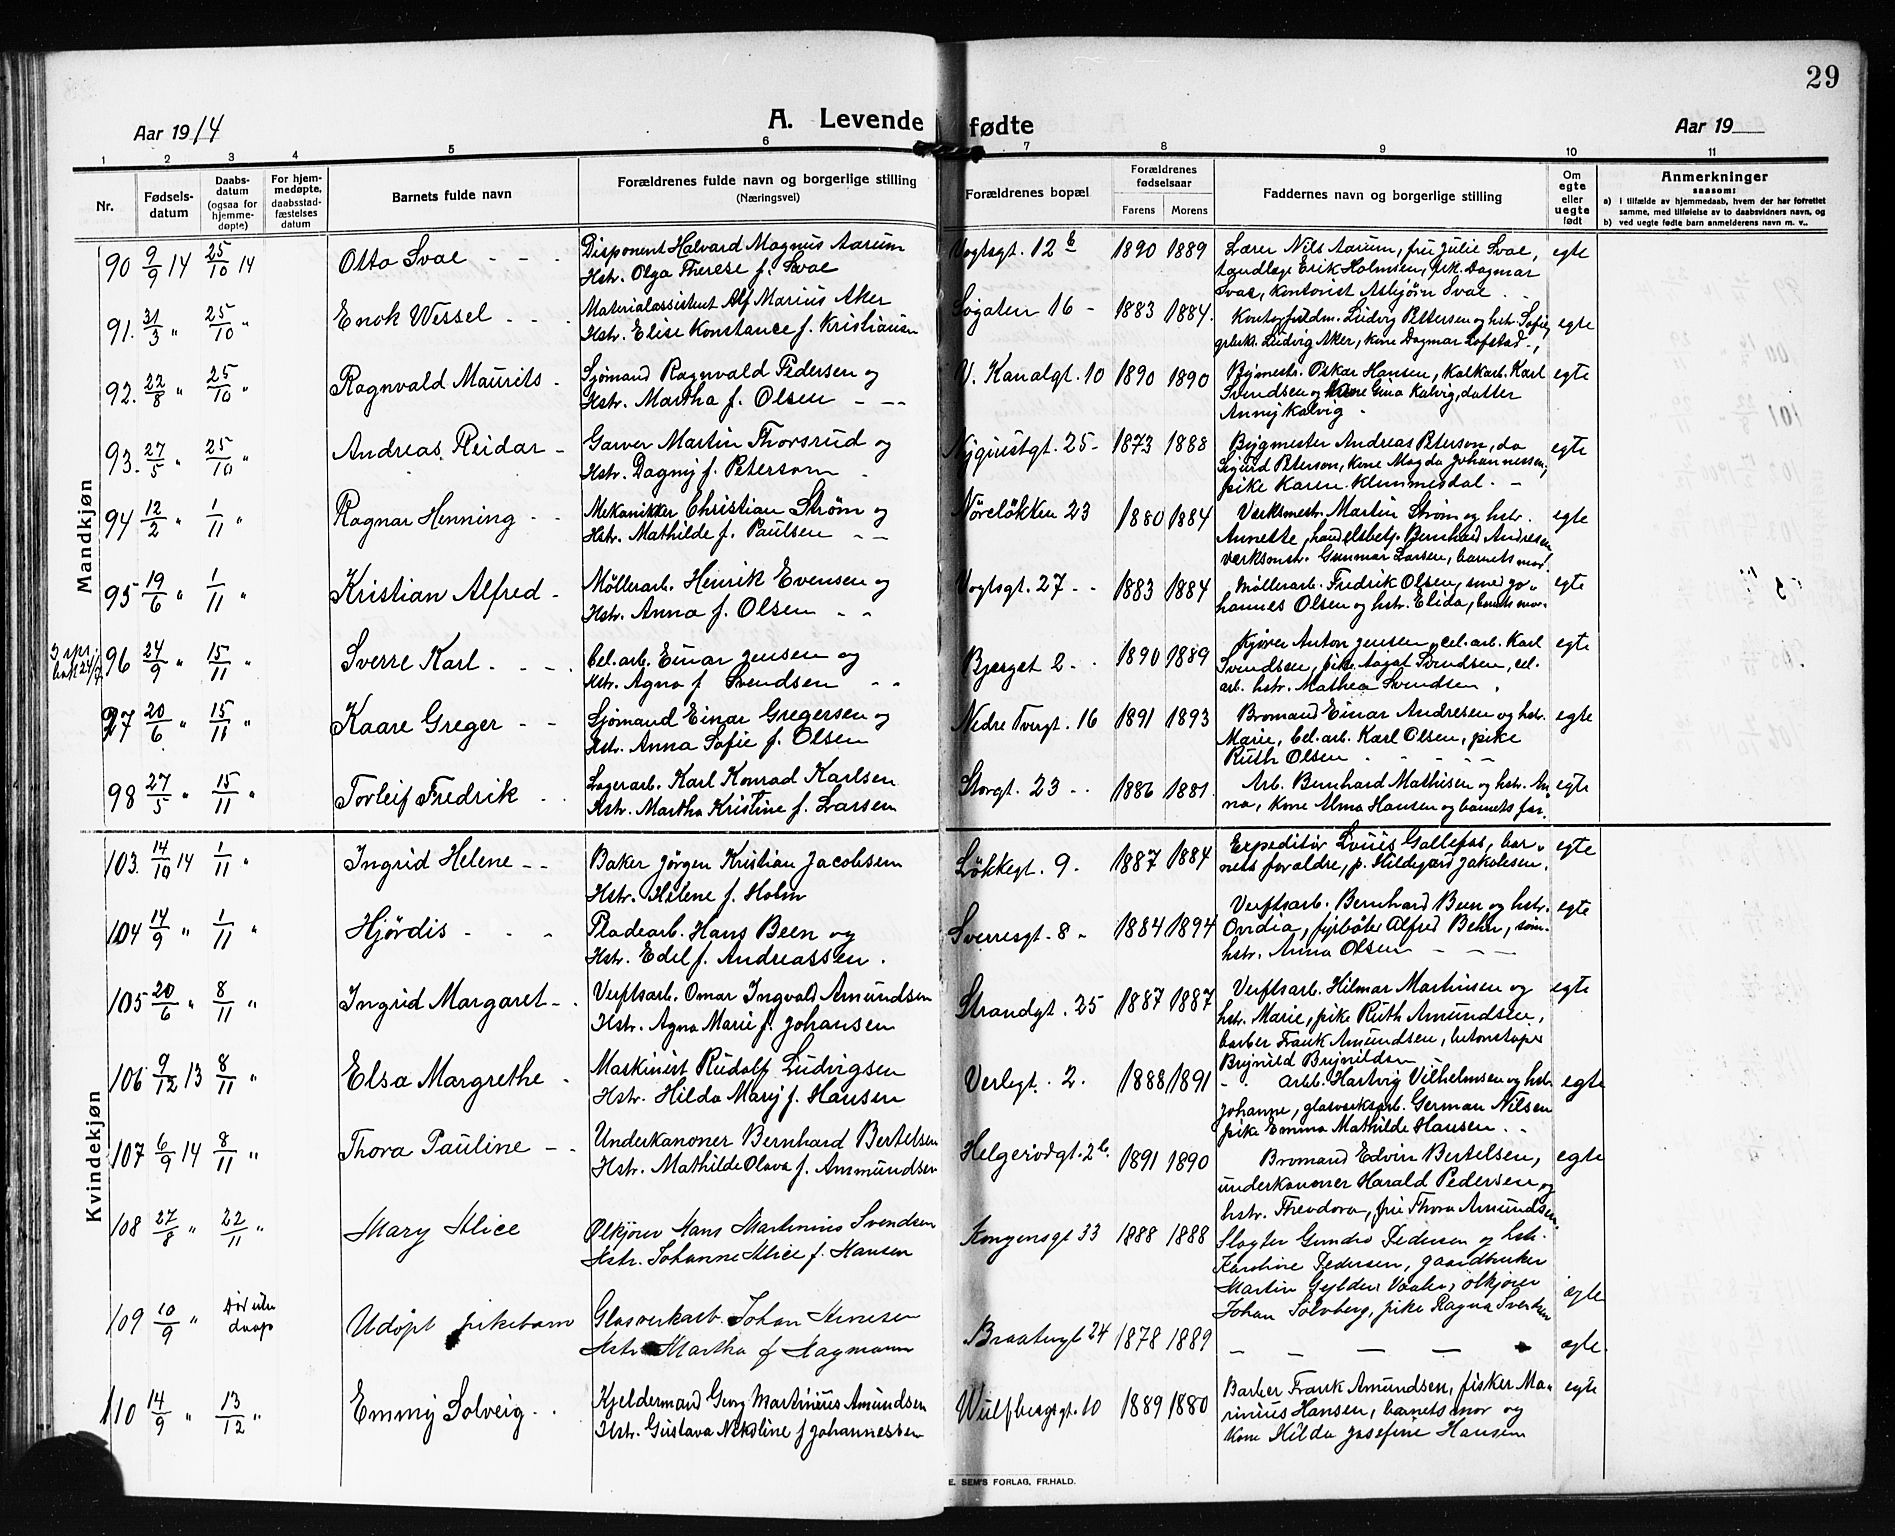 29
Aar 1914
A. Levende fødte
Aar 19
1 2 3 4 5 6 7 8 9 10 11
Nr.
Fødsels-datum
Daabs-datum (ogsaa for hjemme-døpte)
For hjem-medøpte, daabsstad-fæstelses datum
Barnets fulde navn
Forældrenes fulde navn og borgerlige stilling
(Næringsvei)
Forældrenes bopæl
Forældrenes fødselsaar
Farens Morens
Faddernes navn og borgerlige stilling
Om egte eller uegte født
Anmerkninger
saasom:
a) i tilfælde av hjemmedaab, hvem der har forrettet samme, med tilføielse av to daabsvidners navn, og
b) ved uegte fødte barn anmelderens navn m. v..
Mandkjøn
90 9/9 14 25/10 14 Otto Svae - - -
Disponent Halvard Magnus Aarum
Hstr. Olga Therese f. Svae
Vogtsgt. 12 b 1890 1889
Lærer Nils Aarum, fru Julie Svae,
tandlæge Erik Holmsen, pik. Dagmar
Svae, kontorist Asbjørn Svae
egte
91. 31/3 " 25/10 " Enok Wessel - - -
Materialassistent Alf Marius Aker
Hstr. Elise Konstance f. Kristiansen
Søgaten 16 - 1883 1884.
Kontorfuldm. Ludvig Pettersen og hstr. Sofie,
Ludvig Aker, kone Dagmar Lofstad.,
egte
92. 22/8 " 25/10 " Ragnvald Maurits -
Sjømand Ragnvald Pedersen og
Hstr. Martha f. Olsen - --
V. Kanalgt. 10 1890 1890
Bygmestr. Oskar Hansen, kalkarb. Karl
Svendsen og kone Gina Kalvig, datter
Anny Kalvig -
egte
93. 27/5 " 25/10 " Andreas Reidar -
Garver Martin Thorsrud og
Hstr. Dagny f. Peterson -
Nygiustgt. 25 - 1873 1888
Bygmester Andreas Peterson, do
Sigurd Peterson, kone Magda Johannessen,
pike Karen Klemmesdal. -
egte
94 12/2 " 1/11 " Ragnar Henning - -
Mekanikker Christian Strøm og
Hstr. Mathilde f. Paulsen - -
Nøreløkken 23 1880 1884
Værksmestr. Martin Strøm og hstr.
Annette, handelsbetj. Bernhard Andresen
værksmstr. Gunnar Larsen, barnets mor.
egte
95 19/6 " 1/11 " Kristian Alfred -
Møllerarb. Henrik Evensen og
Hstr. Anna f. Olsen - -
Vogtsgt. 27 - - 1883 1884
Møllerarb. Fredrik Olsen, smed Jo-
hannes Olsen og hstr. Elida, barnets mor -
egte
96 24/9 " 15/11 " Sverre Karl - - -
Cel. arb. Einar Jensen og
Hstr. Agna f Svendsen - -
Bjerget 2 - - 1890 1889
Kjører Anton Jensen, cel. arb. Karl
Svendsen, pike Aagot Svendsen, cel.
arb. hstr. Mathea Svendsen,
egte
97 20/6 " 15/11 " Kaare Greger - -
Sjømand Einar Gregersen og
Hstr. Anna Sofie f. Olsen
Nedre Tvergt. 16 1891 1893
Bromand Einar Andresen og hstr.
Marie, cel. arb. Karl Olsen, pike
Ruth Olsen - - - -
egte
98 27/5 " 15/11 " Torleif Fredrik - -
Lagerarb. Karl Konrad Karlsen
Hstr. Martha Kristine f. Larsen
Storgt. 23 - - 1886 1881.
Arb. Bernhard Mathisen og hstr. An
na, kone Alma Hansen og barnets far.
egte
Kvindekjøn
103. 14/10 14 1/11 " Ingrid Helene - -
Baker Jørgen Kristian Jacobsen
Hstr. Helene f. Holm
Løkkegt. 9. 1887 1884
Expeditør Louis Gallefos, bar-
nets forældre, p. Hildegard Jakobsen.
egte
104 14/9 " 1/11 " Hjørdis - - -
Pladearb. Hans Been og
Hstr. Edel f. Andreassen.
Sverresgt. 8 - 1884 1894
Verftsarb. Bernhard Been og hstr.
Ovidia, fyrbøter Alfred Behn, søm.
hstr. Anna Olsen - - -
egte
105 20/6 " 8/11 " Ingrid Margaret - -
Verftsarb. Omar Ingvald Amundsen
Hstr. Agna Marie f. Johansen
Strandgt. 25 1887 1887
Verftsarb. Hilmar Martinsen og
hstr. Marie, pike Ruth Amundsen,
barber Frank Amundsen, betonstøper
Brynild Brynildsen
egte
106 9/12 13 8/11 " Elsa Margrethe -
Maskinist Rudolf Ludvigsen
Hstr. Hilda Mary f. Hansen
Verlegt. 2. 1888 1891
- - Arb. Hartvig Vilhelmsen og hstr
Johanne, glasværksarb. German Nilsen
pike Emma Mathilde Hansen. - -
egte
107 6/9 14 8/11 " Thora Pauline - -
Underkanoner Bernhard Bertelsen
Hstr. Mathilde Olava f. Ammundsen
Helgerødgt. 2 b. 1891 1890
Bromand Edvin Bertelsen,
underkanoner Harald Pedersen og
hstr. Theodora, fru Thora Amundsen.
egte
108 27/8 " 22/11 " Mary Alice
Ølkjører Hans Martinius Svendsen
Hstr. Johanne Alice f. Hansen
Kongensgt 33 1888 1888
Slagter Gundro Pedersen og hstr.
Karoline Pedersen, gaardbruker
Martin Gylder Vaaler, ølkjører
Johan Solvberg, pike Ragna Svendsen
egte
109 10/9 " Død uten daap Udøpt pikebarn
Glasverkarb. Johan Arnesen
Hstr Martha f Hagmann
Braatengt 24 1878 1889
- - - - -
egte.
110 14/9 " 13/12 " Emmy Solveig - -
Kjeldermand Georg Martinius Amundsen
Hstr. Gustava Nikoline f Johannessen
Wulfbergsgt. 10 1889 1880
Barber Frank Amundsen, fisker Ma-
rinius Hansen, barnets mor og
kone Hilda Josefine Hansen
egte
E. SEM'S FORLAG, FR.HALD.